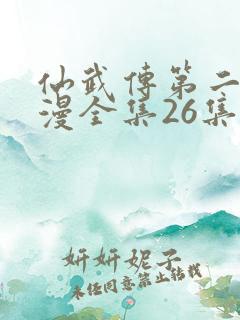 仙武传第二
漫全集26集
妍妍妮子
未经同意禁止转载